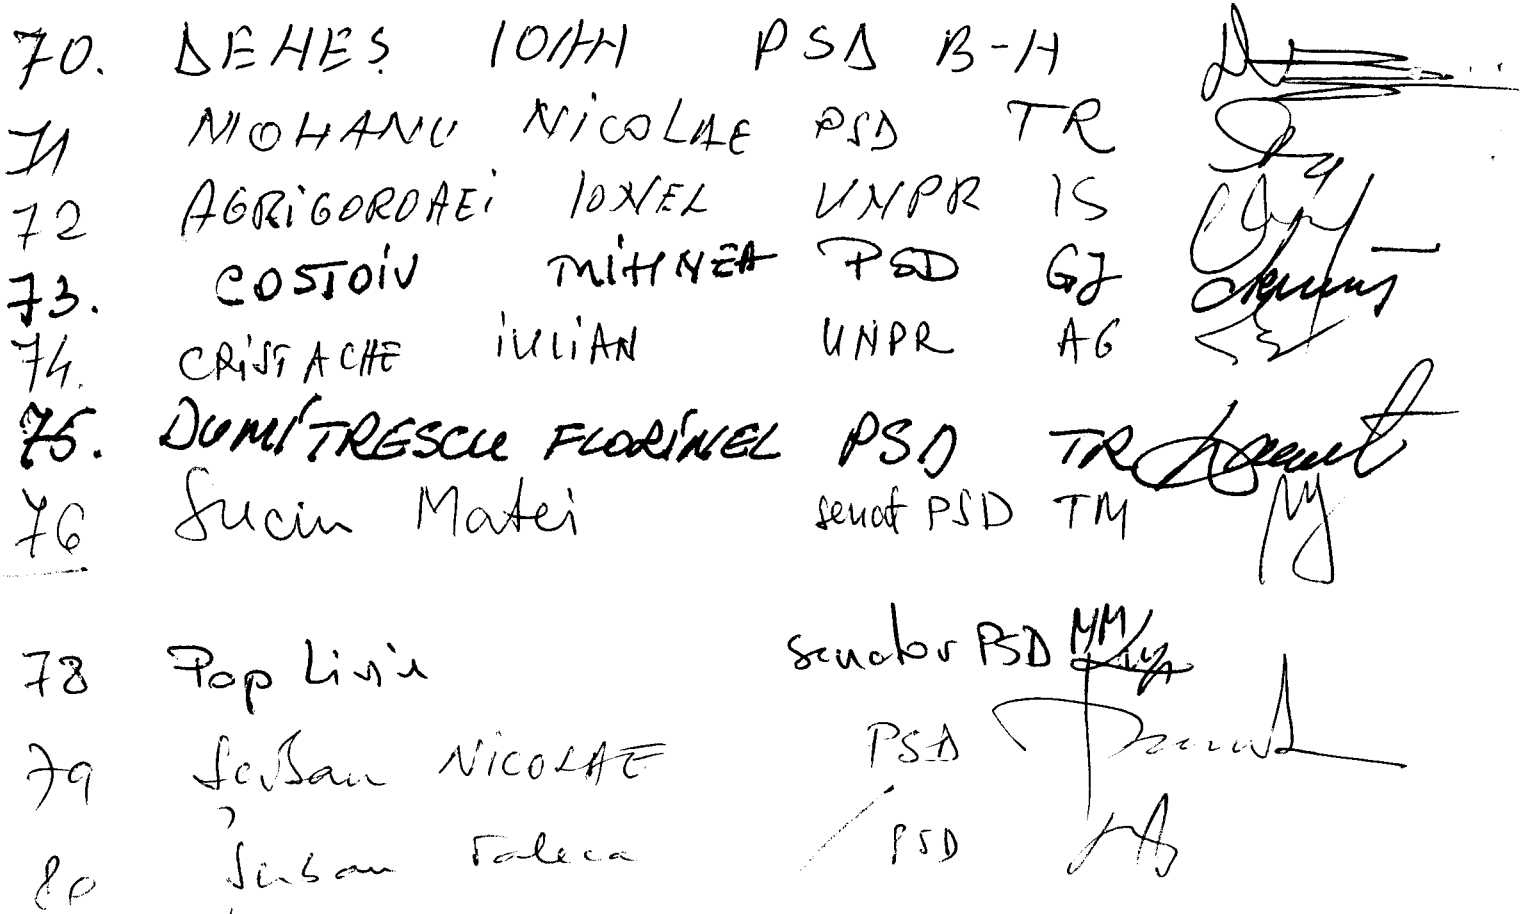 70. DEHEȘ IOAH PSD B-H
71 MOHANU NICOLAE PSD TR
72 AGRIGOROAEI IONEL UNPR IS
73. COSTOIU MIHNEA PSD GJ
74. CRISTACHE IULIAN UNPR AG
75. DUMITRESCU FLORINEL PSD TR
76 Suciu Matei senat PSD TM
78 Pop Liviu senator PSD MM
79 Șerban NICOLAE PSD
80 Șerban PSD